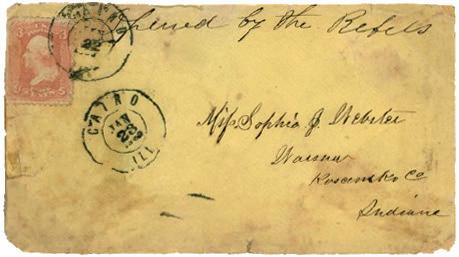 Opened by the Rebels
3 3
CAIRO
JAN
23
ILL.
Miss Sophia J. Webster
Warsaw
Kosciusko Co
Indiana